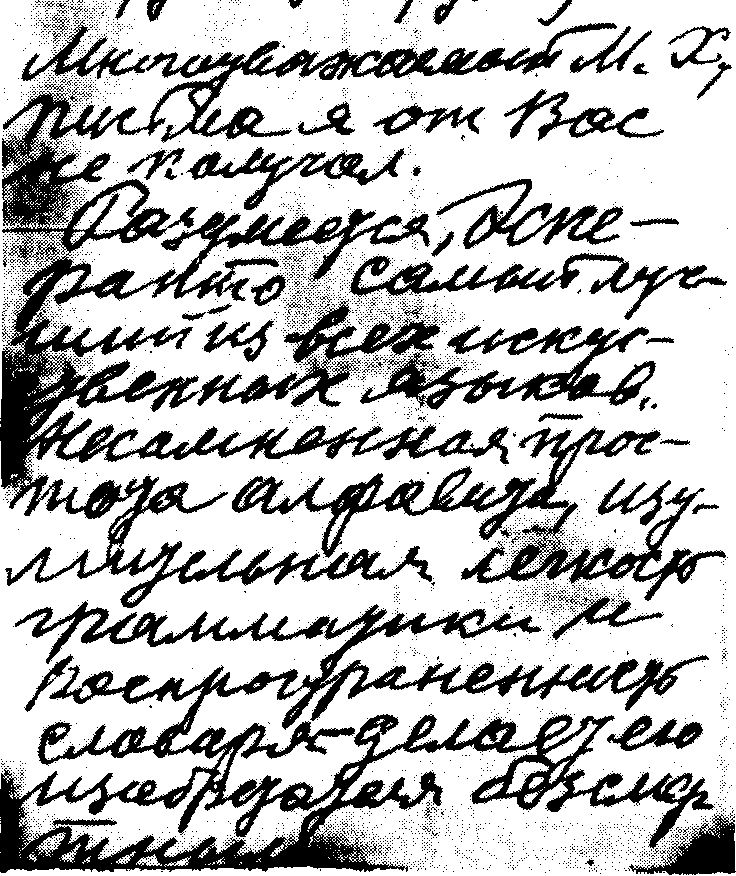 Многоуважаемый М. Х,
письма я от Вас
не получал.
Разумеется, Эспе-
ранто самый луч-
ший из всех искус-
твенных языков.
Несомненная прос-
тота алфавита, изу-
мительная лёгкость
грамматики и
распространенность
словаря делает его
изобретателя безсмер
тным